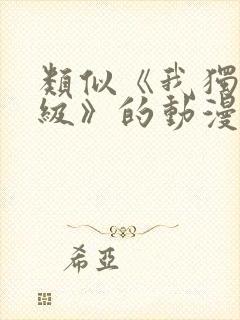 類似《我獨
級》的動漫
希亞